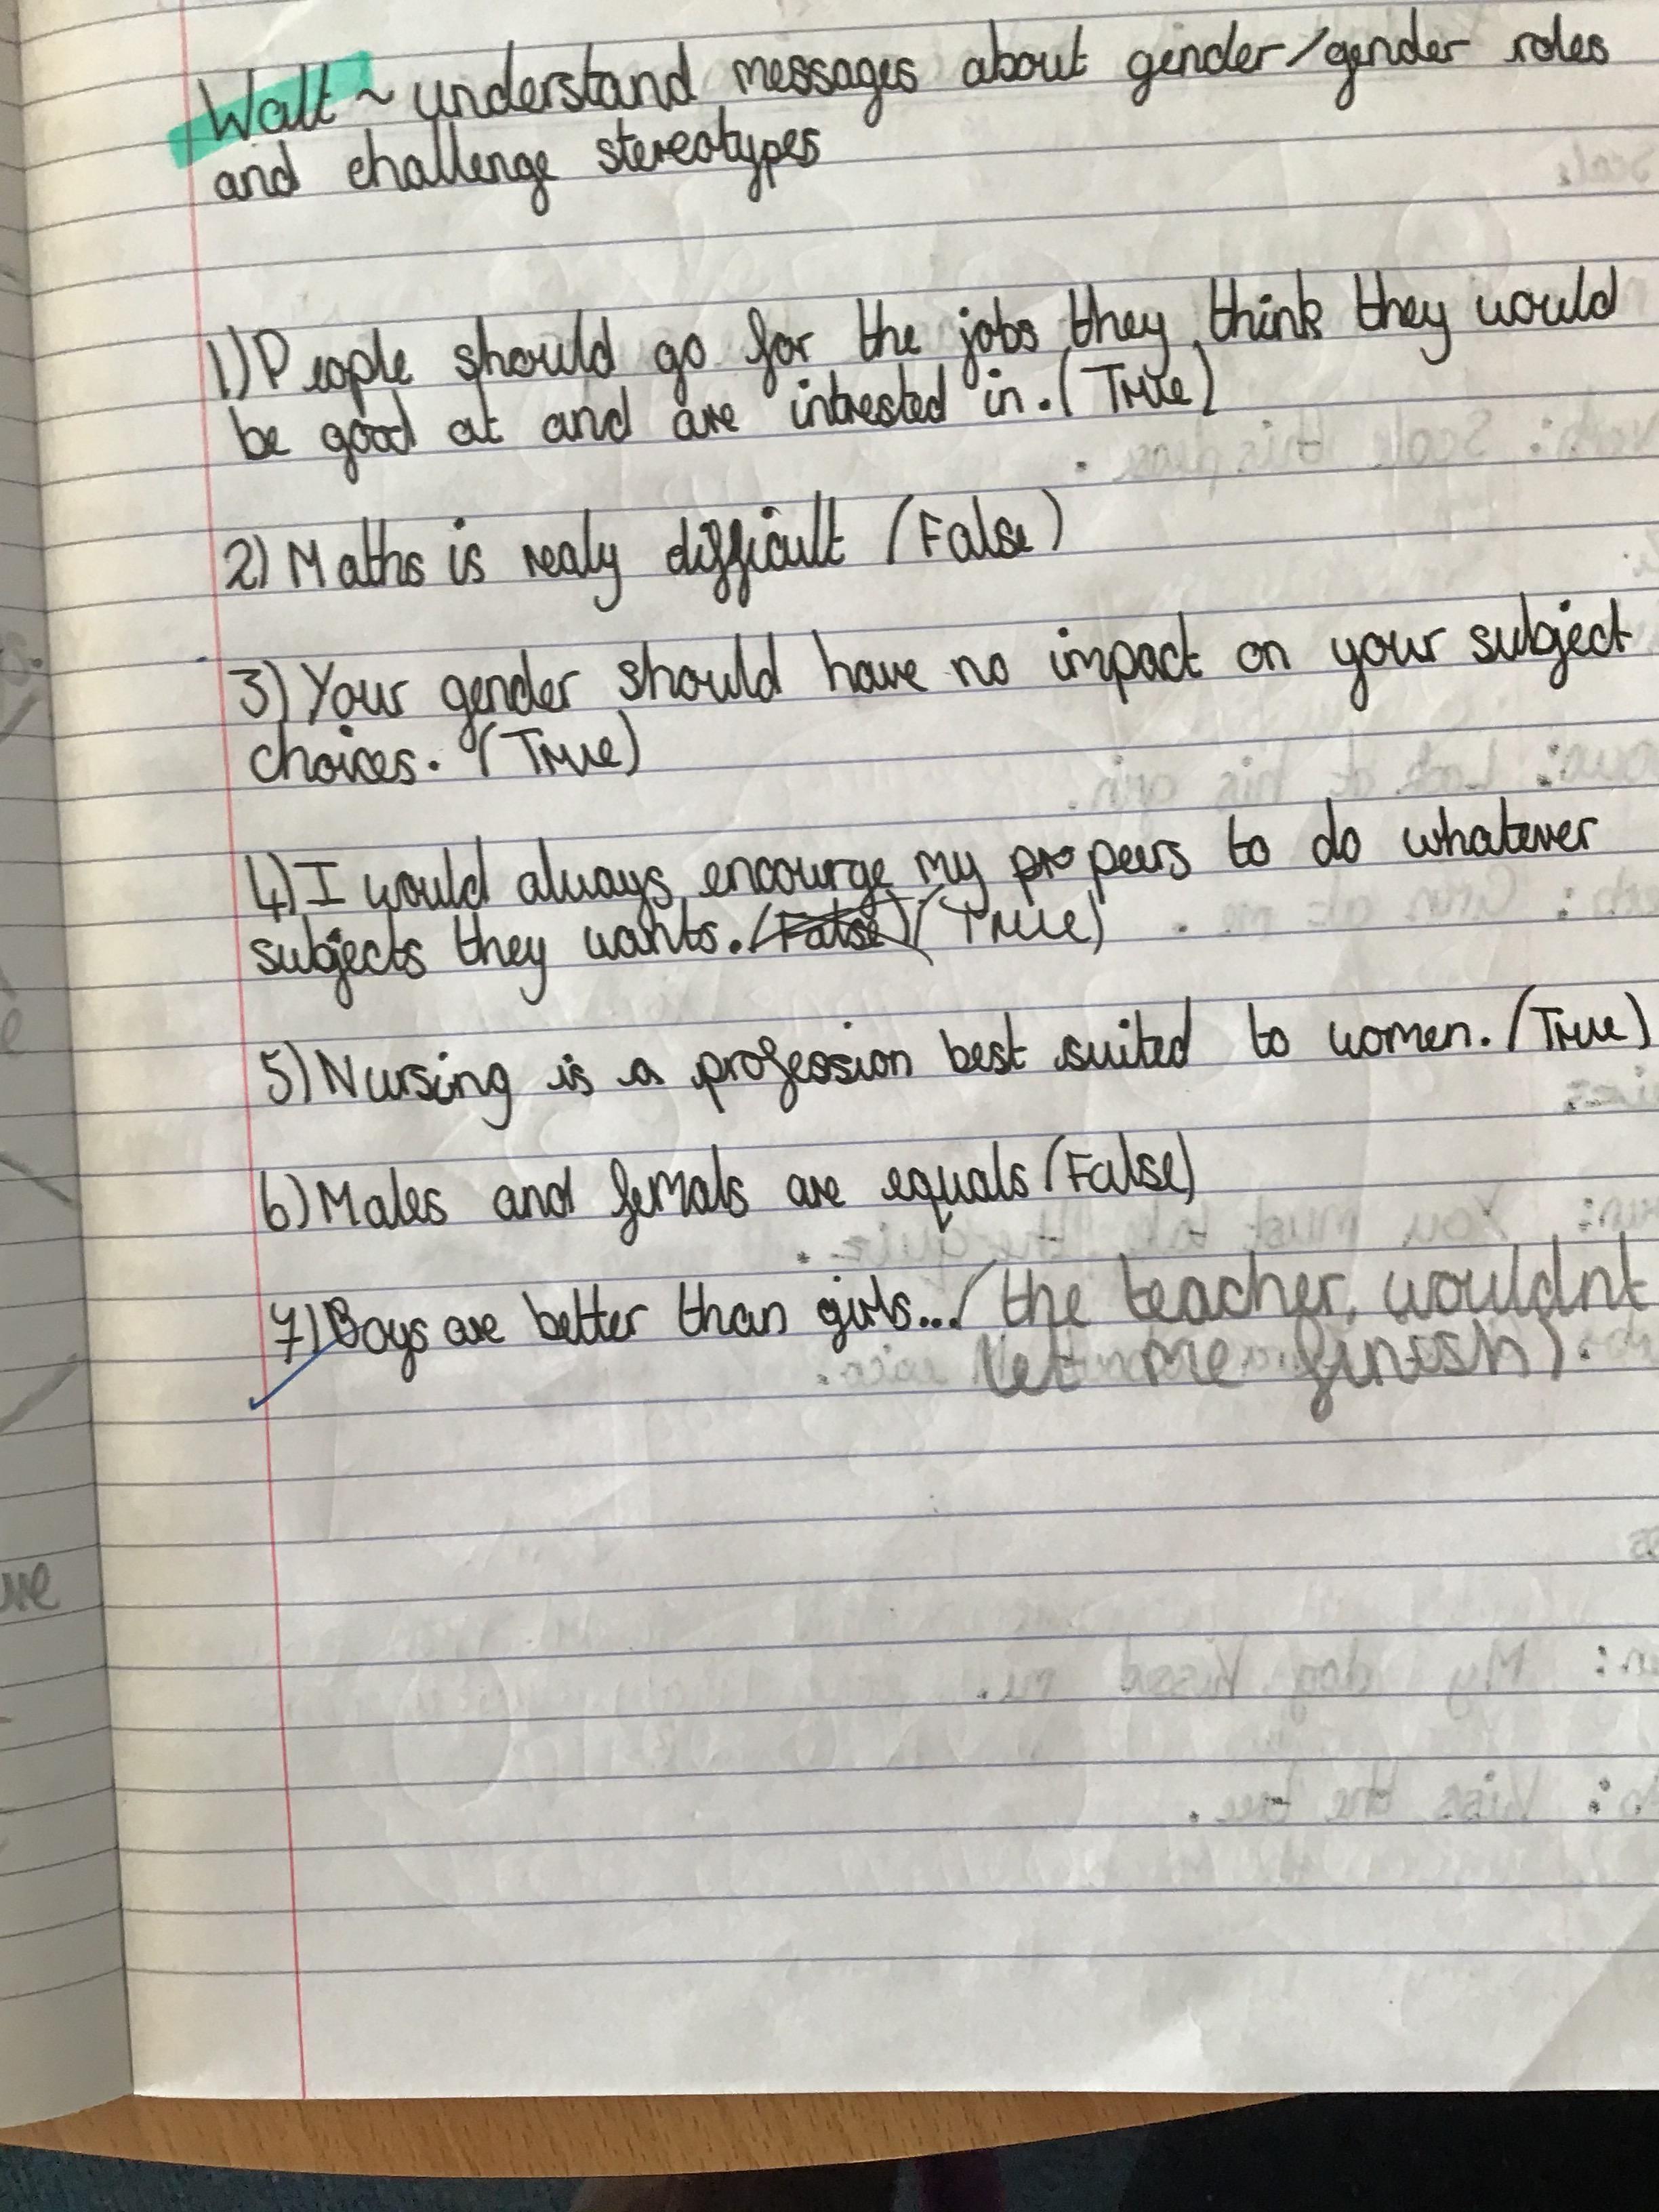 Walt ~ understand messages about gender/gender roles
and challenge stereotypes
1) People should go for the jobs they think they would
be good at and are intrested in. (True)
2) Maths is realy difficult (False)
3) Your gender should have no impact on your subject
choices. (True)
4) I would always encourge my pro peers to do whatever
subjects they wants. (False) (True)
5) Nursing is a profession best suited to women. (True)
6) Males and femals are equals (False)
7) Boys are better than girls... (the teacher wouldnt
let me finish).